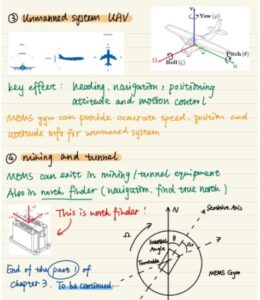 ③ Unmanned system UAV
Yaw (φ)
Pitch (θ)
Roll (ζ)
key effect: heading, navigation, positioning
attitude and motion control
MEMS gyro can provide accurate speed, position and
attitude info for unmanned system
④ mining and tunnel
MEMS can exist in mining/tunnel equipment
Also in north finder (navigation, find true north)
This is north finder!
N
Sensitive Axis
Ω
Angle
Turntable
MEMS Gyro
End of the part 1 of
chapter 3. To be continued...